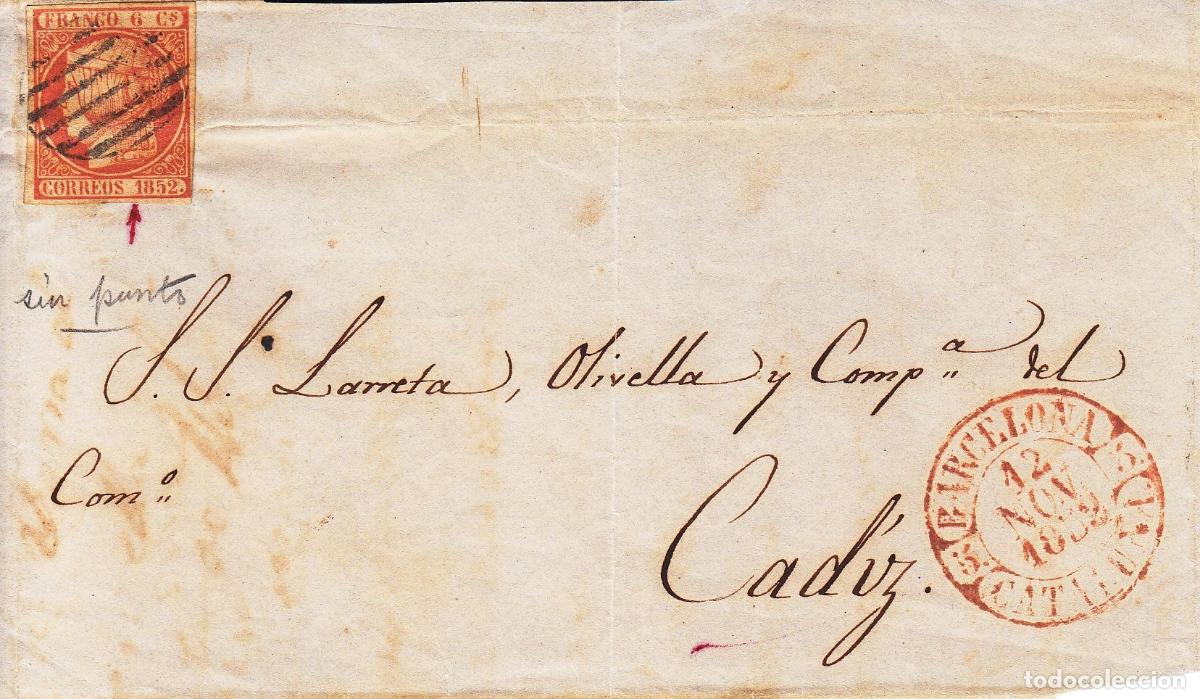 FRANCO 6 Cs
CORREOS 1852.
sin punto
S. S. Larreta, Olivella y Comp.ª del
Com.º
Cadíz.
BARCELONA
12
NOV
1852
CATALUÑA
todocoleccion